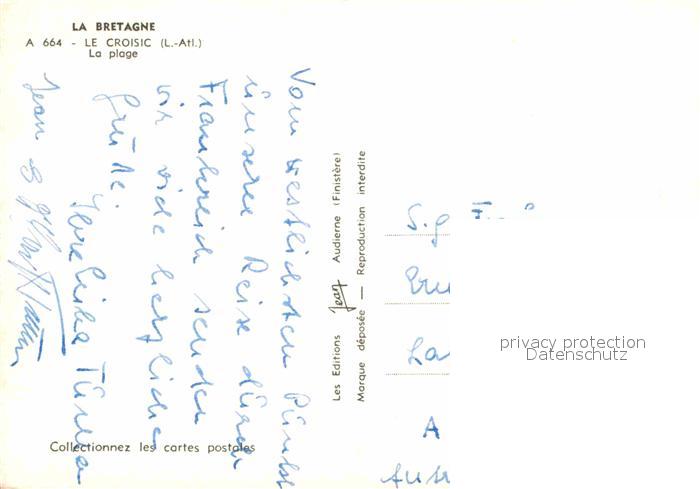 LA BRETAGNE
A 664 - LE CROISIC (L.-Atl.)
La plage
Vom westlichsten Punkt
unserer Reise durch
Frankreich senden
wir viele herzliche
Grüße
Jean
Les Editions Jean Audierne (Finistère)
Marque déposée — Reproduction interdite
Sig F
A
privacy protection
Datenschutz
Collectionnez les cartes postales